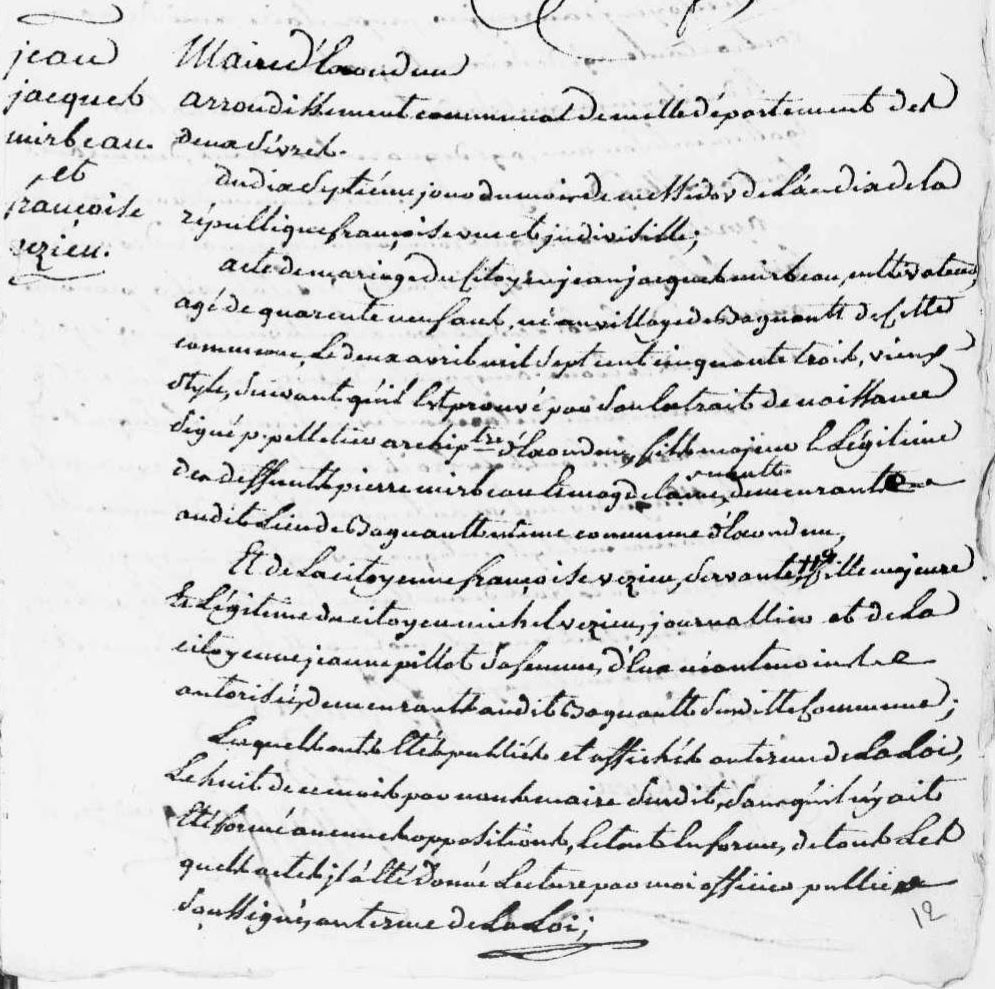 jean
jacques
mirbeau.
et
françoise
vezien.
Maire d'Exoudun
arrondissement communal de melle département des
deux Sèvres.
du dix Septième jour du mois de messidor de L'an dix de la
république françoise une et indivisible;
acte de mariage du Citoyen jean jacques mirbeau, cultivateur,
agé de quarente neuf ans, né au village des Baguault de Cette
commune, Le deux avril mil Sept cent cinquante trois, vieux
Style, Suivant qu'il Est prouvé par Son Extrait de naissance
Signé p. pelletier archiptre d'Exoudun, fils majeur & Légitime
de deffunts pierre mirbeau Et magdelaine, demeurants
audit Lieu des Baguault même commune d'Exoudun,
Et de La citoyenne françoise vezien, Servante, fille majeure
Et Légitime du citoyen michel vezien, journallier et de La
citoyenne jeanne pillot Sa femme, d'Eux néantmoins
autorisée, demeurants audit Baguault Susditte Commune;
Lesquels ont Etés publiés et affichés au terme de La Loi,
Le huit de ce mois par nous maire Susdit, Sans qu'il n'y ait
Eté formé aucunes oppositions, Le tout En forme, de tous Les
quels actes il a Eté Donné Lecture par moi officier publicq
Soussigné, au terme de La Loi;
12